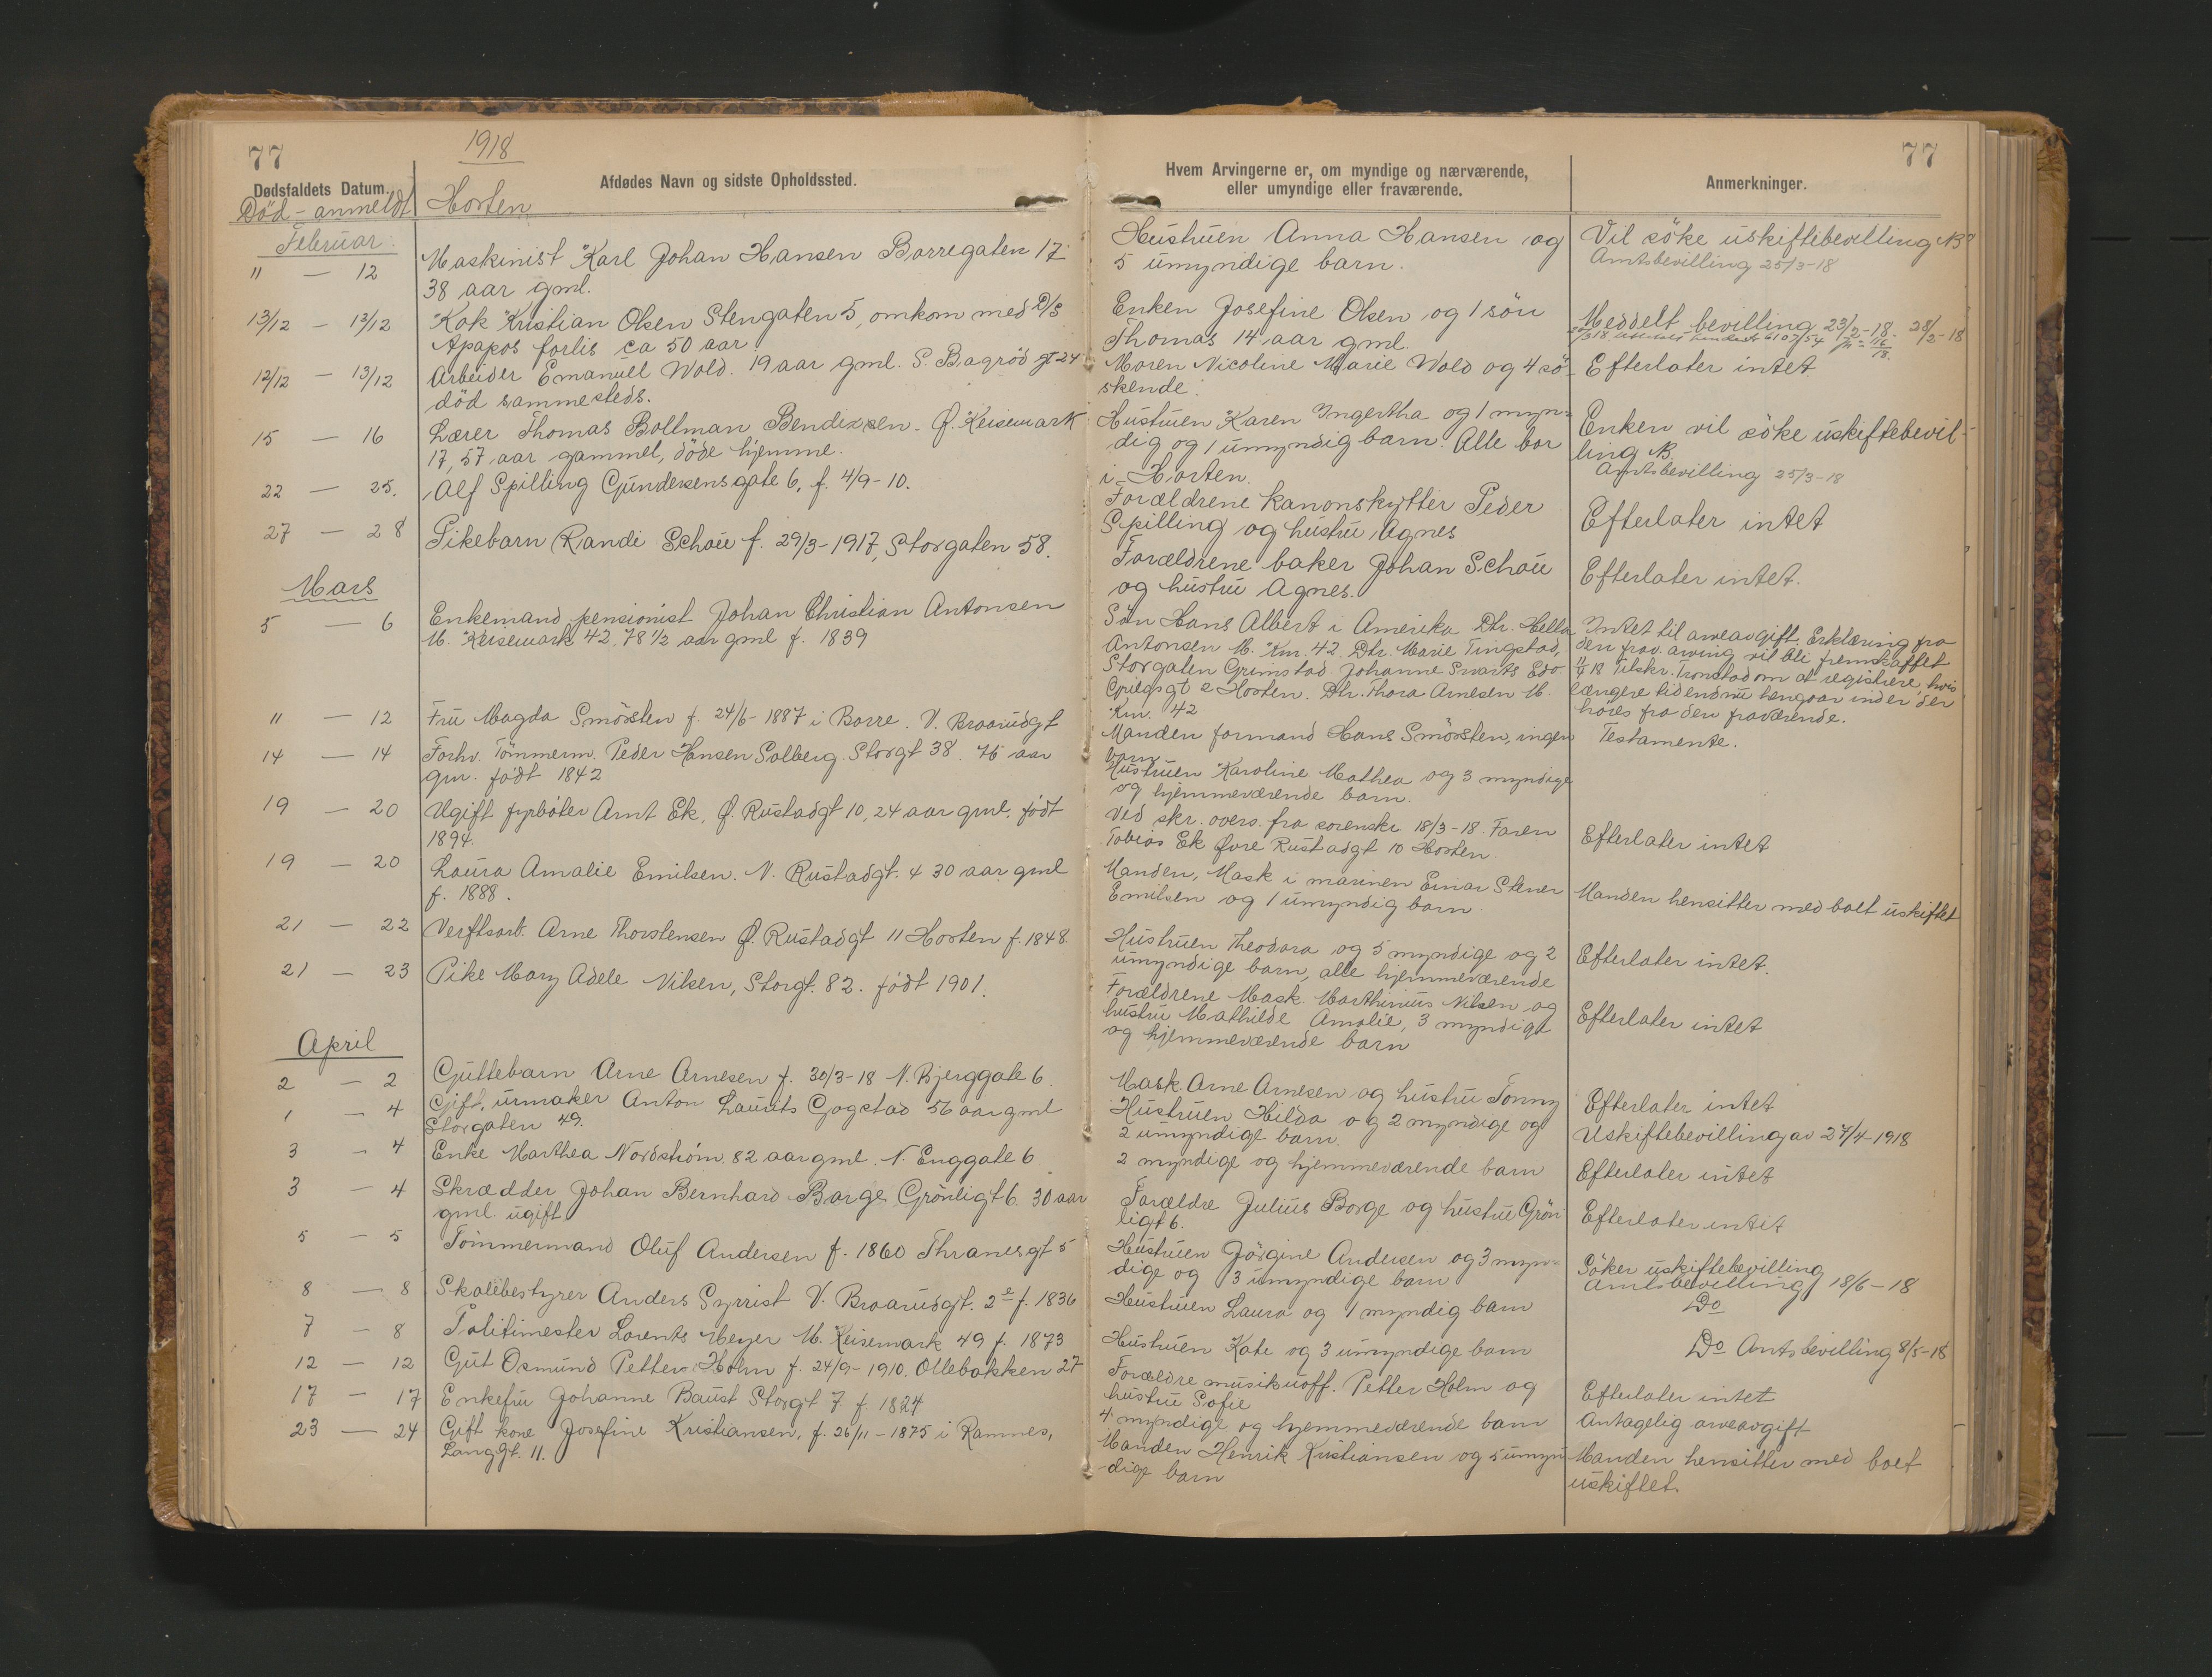 77
1918
Dødsfaldets Datum.
Afdødes Navn og sidste Opholdssted.
Död - anmeldt
Horten
Februar.
11 — 12
Maskinist Karl Johan Hansen Borregaten 17
38 aar gml.
13/12 — 13/12
Kok Kristian Olsen Stengaten 5, omkom med D/S
Apapos forlis ca 50 aar
12/12 — 13/12
Arbeider Emanuel Wold. 19 aar gml. S. Bagrød gt 24
död sammesteds.
15 — 16
Lærer Thomas Bollman Bendixsen - Ø. Keisemark
17, 57 aar gammel, döde hjemme.
22 — 25.
Alf Spilling Gundersensgate 6, f. 4/9-10.
27 — 28
Pikebarn Randi Schou f. 29/3-1917, Storgaten 58.
Mars
5 — 6
Enkemand pensionist Johan Christian Antonsen
M. Keisemark 42, 78 1/2 aar gml f. 1839
11 — 12
Fru Magda Smörsten f. 24/6-1887 i Borre. V. Braarudgt
14 — 14
Forhv. Tömmerm. Peder Hansen Solberg. Storgt 38. 76 aar
gm. födt 1842
19 — 20
Ugift fyrböter Arnt Ek, Ø. Rustadgt 10, 24 aar gml. födt
1894.
19 — 20
Laura Amalie Emilsen. N. Rustadgt. 4 30 aar gml
f. 1888.
21 — 22
Verftsarb. Arne Thorstensen Ø. Rustadgt 11 Horten f. 1848.
21 — 23
Pike Mary Adele Nilsen, Storgt. 82. födt 1901.
April
2 — 2
Guttebarn Arne Arnesen f. 30/3-18 N. Bjerggate 6.
1 — 4
Gift, urmaker Anton Laurits Gogstad 56 aar gml
Storgaten 49.
3 — 4
Enke Marthea Nordström. 82 aar gml. N. Enggate 6
3 — 4
Skrædder Johan Bernhard Borge Grönligt 6. 30 aar
gml. ugift
5 — 5
Tömmermand Oluf Andersen f. 1860 Thranesgt 5
8 — 8
Skolebestyrer Anders Syrrist V. Braarudgt. 2e f. 1836
7 — 8
Politimester Lorents Meyer M. Keisemark 49 f. 1873
12 — 12
Gut Osmund Petter Holm f. 24/9-1910. Ollebakken 27
17 — 17
Enkefru Johanne Baust Storgt 7 f. 1824
23 — 24
Gift kone Josefine Kristiansen, f. 26/11-1875 i Ramnes,
Langgt. 11.
77
Hvem Arvingerne er, om myndige og nærværende,
eller umyndige eller fraværende.
Anmerkninger.
Hustruen Anna Hansen og
5 umyndige barn.
Vil söke uskiftebevilling
Amtsbevilling 25/3-18
Enken Josefine Olsen og 1 sön
Thomas 14 aar gml.
Meddelt bevilling 23/2-18. 28/2-18
Moren Nicoline Marie Wold og 4 sö-
skende.
Efterlater intet.
Hustruen Karen Ingertha og 1 myn-
dig og 1 umyndig barn. Alle bor
i Horten.
Enken vil söke uskiftebevil-
ling
Amtsbevilling 25/3-18
Forældrene kanonskytter Peder
Spilling og hustru Agnes
Efterlater intet
Forældrene baker Johan Schou
og hustru Agnes.
Efterlater intet.
Sön Hans Albert i Amerika Dtr. Hella
Antonsen M. Km. 42. Dtr. Marie Tingstad,
Storgaten Grimstad. Johanne Svarts Edv.
Griegsgt 2 Horten. Dtr. Thora Arnesen M.
Km. 42
Intet til arveavgift. Erklæring fra
den frav. arving vil bli fremskaffet
Tilskr. Tronstad om at registrere, hvis
længere tid endnu hengaar inden der
höres fra den fraværende.
Manden formand Hans Smörsten, ingen
barn
Testamente.
Hustruen Karoline Mathea og 3 myndige
og hjemmeværende barn.
Ved skr. overs. fra sorenskr. 18/3-18. Faren
Tobias Ek Övre Rustadgt 10 Horten.
Efterlater intet
Manden, Mask i marinen Einar Stener
Emilsen og 1 umyndig barn.
Manden hensitter med boet uskiftet
Hustruen Theodora og 5 myndige og 2
umyndige barn, alle hjemmeværende
Efterlater intet.
Forældrene Mask. Marthinius Nilsen og
hustru Mathilde Amalie, 3 myndige
og hjemmeværende barn
Efterlater intet
Mask. Arne Arnesen og hustru Tonny
Efterlater intet
Hustruen Hilda og 2 myndige og
2 umyndige barn.
Uskiftebevilling av 27/4-1918
2 myndige og hjemmeværende barn
Efterlater intet
Forældre Julius Borge og hustru Grön-
ligt 6.
Efterlater intet
Hustruen Jörgine Andersen og 3 myn-
dige og 3 umyndige barn
Söker uskiftebevilling
Amtsbevilling 18/6-18
Hustruen Laura og 1 myndig barn
Do
Hustruen Kate og 3 umyndige barn
Do Amtsbevilling 8/5-18
Forældre musikuoff. Petter Holm og
hustru Sofie
Efterlater intet
4 myndige og hjemmeværende barn
Antagelig arveavgift
Manden Henrik Kristiansen og 5 umyn
dige barn
Manden hensitter med boet
uskiftet.